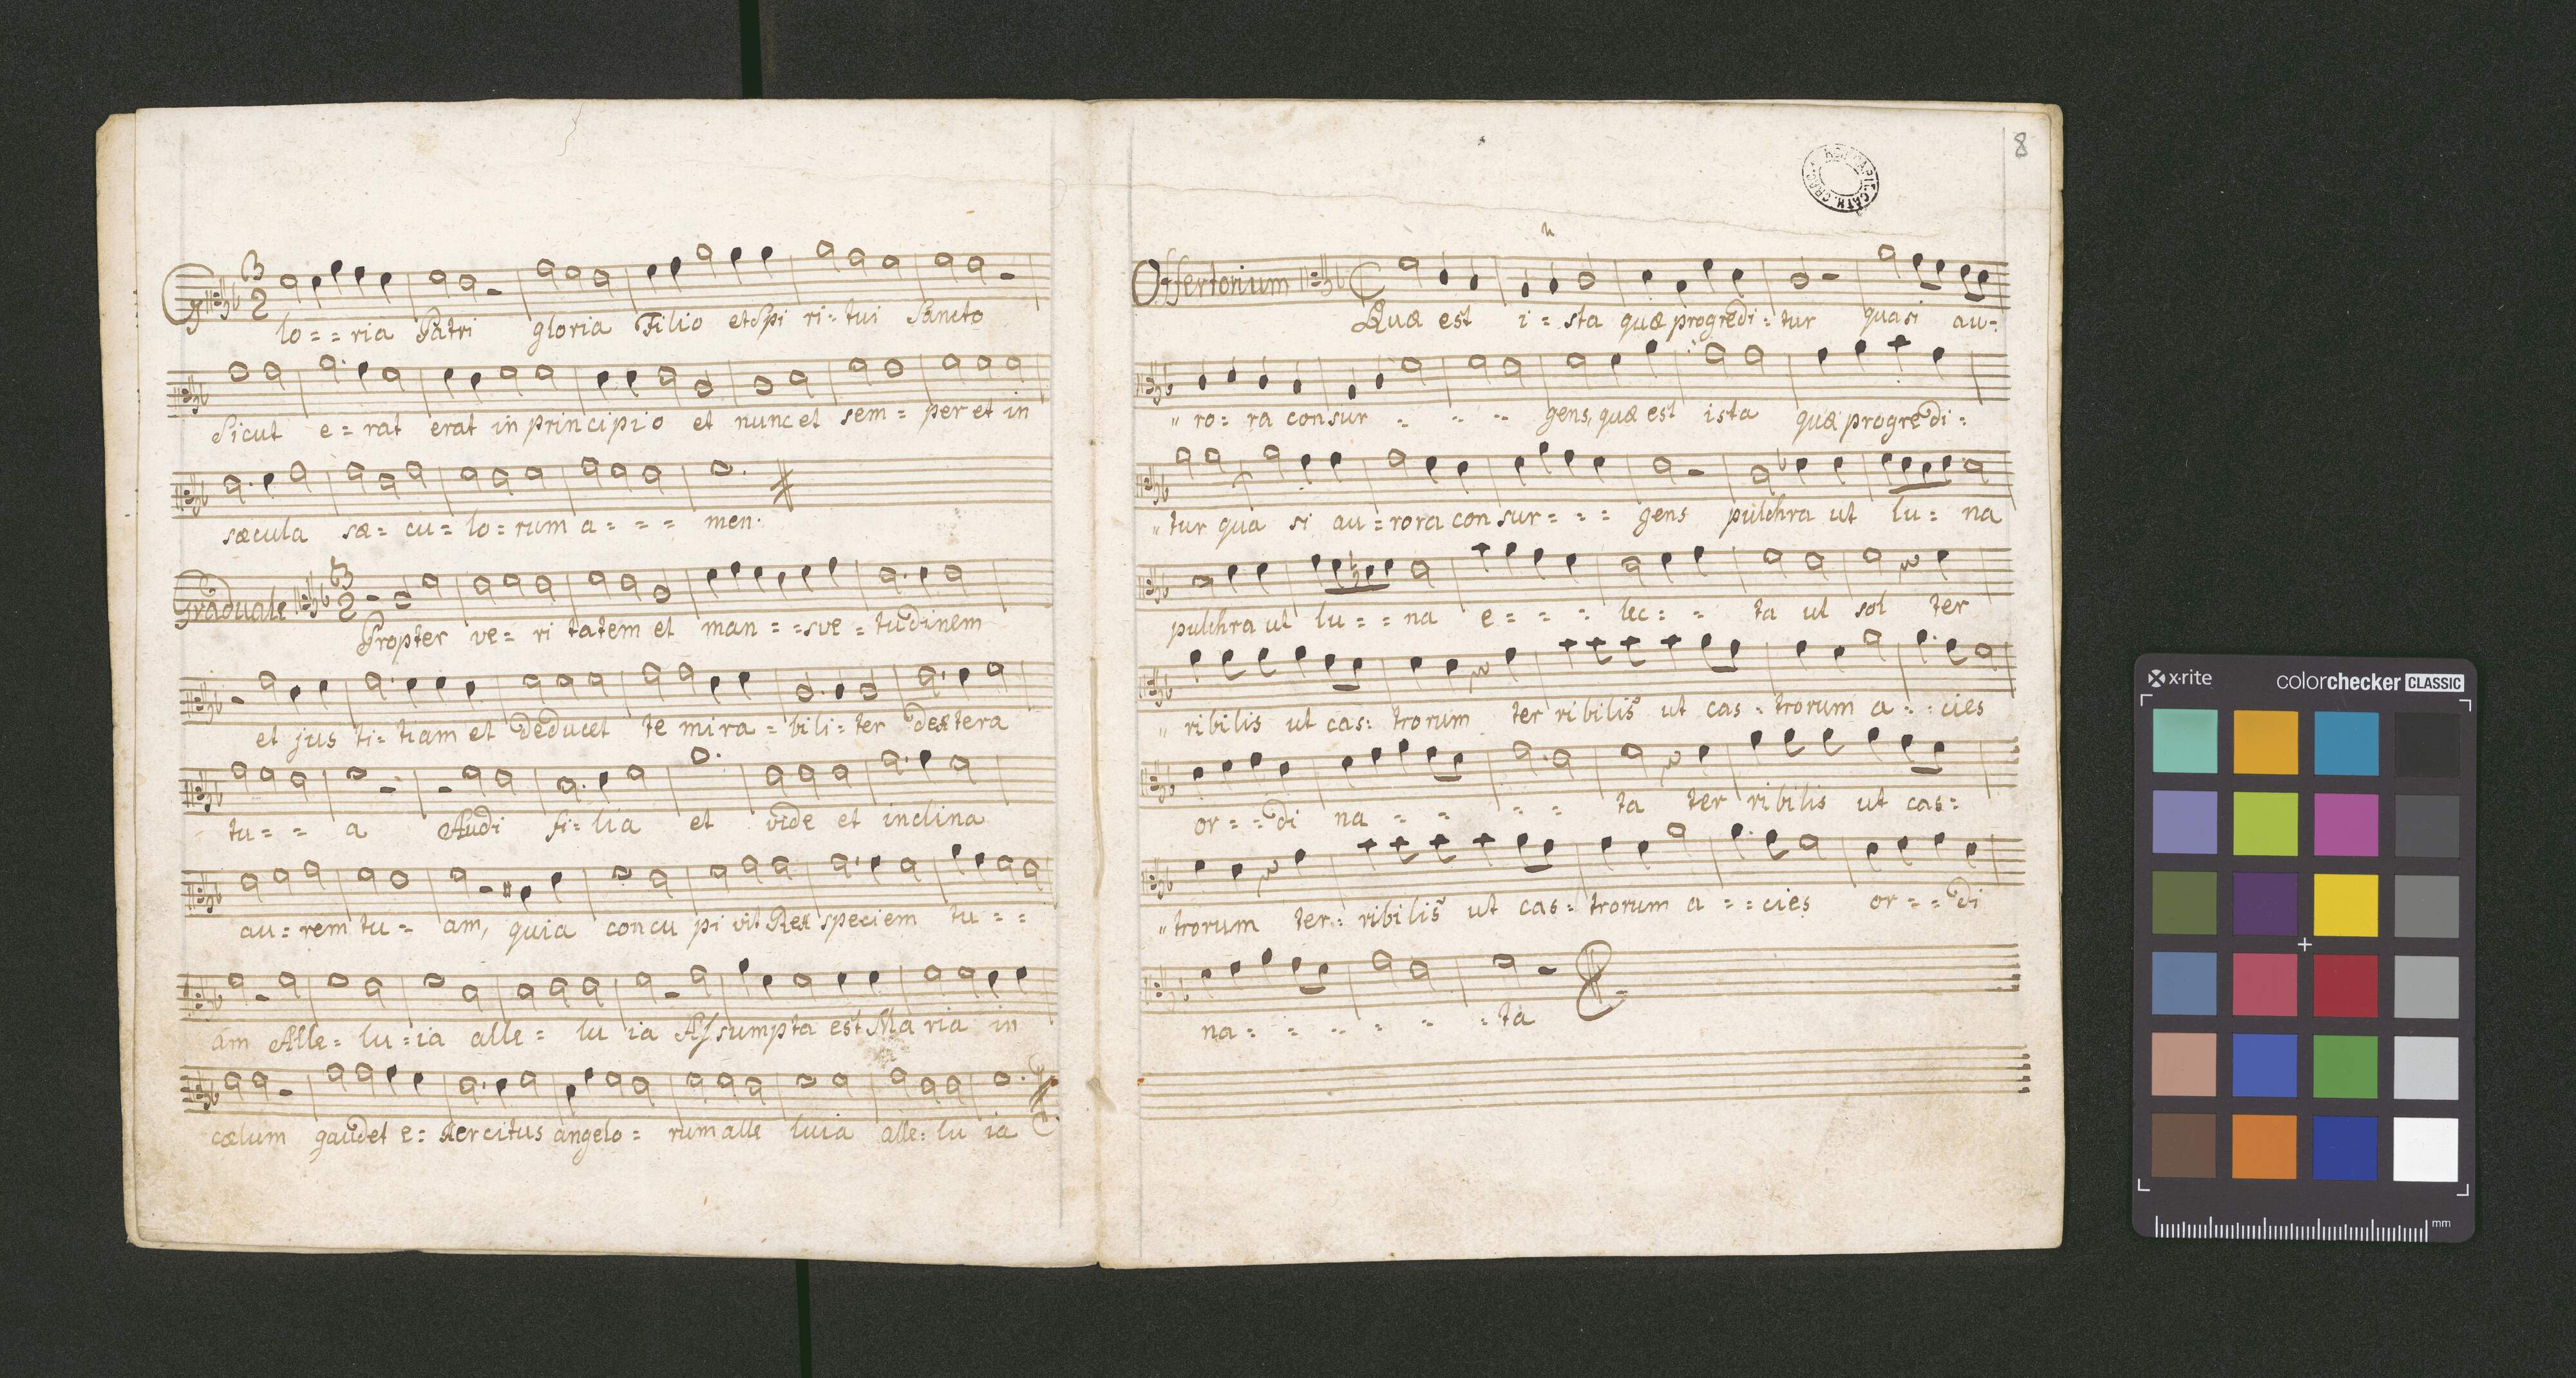 3
2
Glo = = ria Patri gloria Filio et Spi ri = tui Sancto
Sicut e = rat erat in principio et nunc et sem = per et in
sæcula sæ = cu = lo = rum a = = = men:
Graduale 3
2
Propter ve = ri tatem et man = = sve = tudinem
et jus ti = tiam et deducet te mira = bili = ter dextera
tu = = a Audi fi = lia et vide et inclina
au = rem tu = am, quia concu pi vit Rex speciem tu = =
am Alle = lu = ia alle = lu ia Assumpta est Ma ria in
cælum gaudet e = xercitus angelo = rum alle luia alle = lu ia
8
Offertorium C
Quæ est i = sta quæ progredi = tur quasi au =
" ro = ra consur = = = gens, quæ est ista quæ progredi =
" tur qua si au = rora con sur = = = gens pulchra ut lu = na
pulchra ut lu = = na e = = = lec = = ta ut sol ter
" ribilis ut cas = trorum ter ribilis ut cas = trorum a = = cies
or = = di na = = = = ta ter ribilis ut cas =
" trorum ter = ribilis ut cas = trorum a = = cies or = = di
na = = = = = = ta
x·rite colorchecker CLASSIC
mm